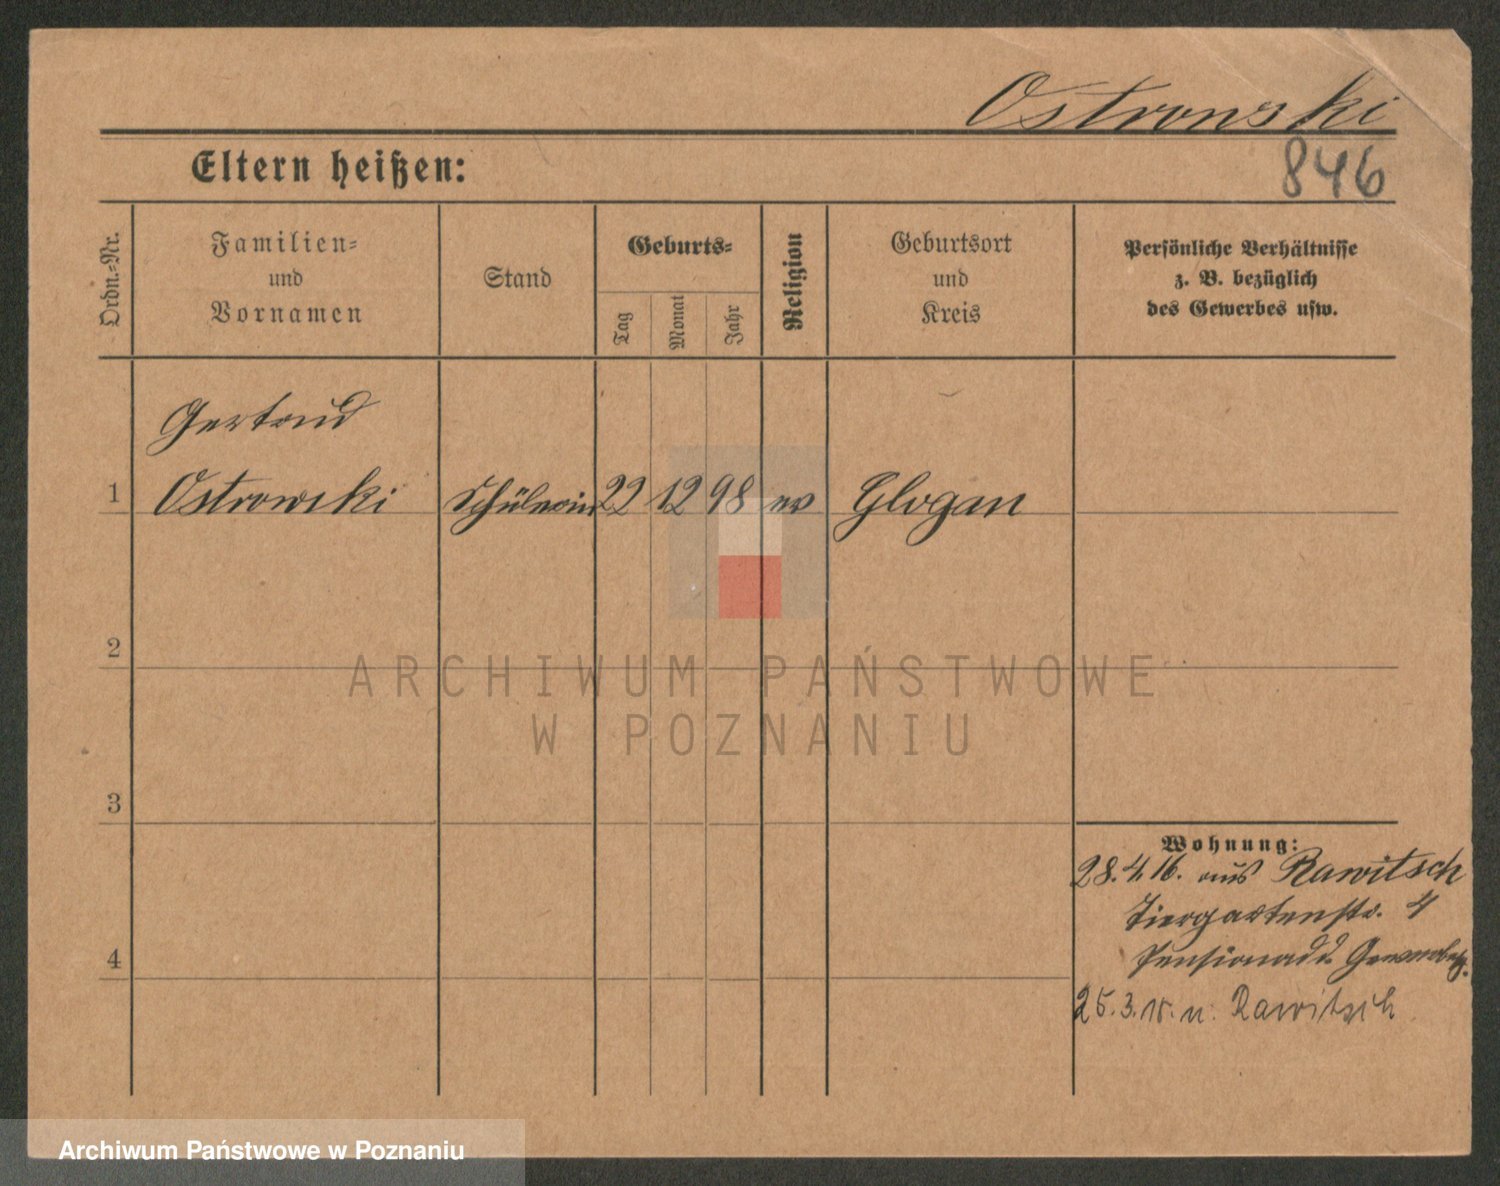 Ostronski
846
Eltern heißen:
Ordn.-Nr.
Familien-
und
Vornamen
Stand
Geburts-
Tag
Monat
Jahr
Religion
Geburtsort
und
Kreis
Persönliche Verhältnisse
z. B. bezüglich
des Gewerbes usw.
Gertrud
1 Ostrowski Schülerin 22 12 98 ev Glogau
2
ARCHIWUM PAŃSTWOWE
W POZNANIU
3
Wohnung:
28.4.16. aus Rawitsch
Tiergartenstr. 4
4
25.3. n. Rawitsch
Archiwum Państwowe w Poznaniu